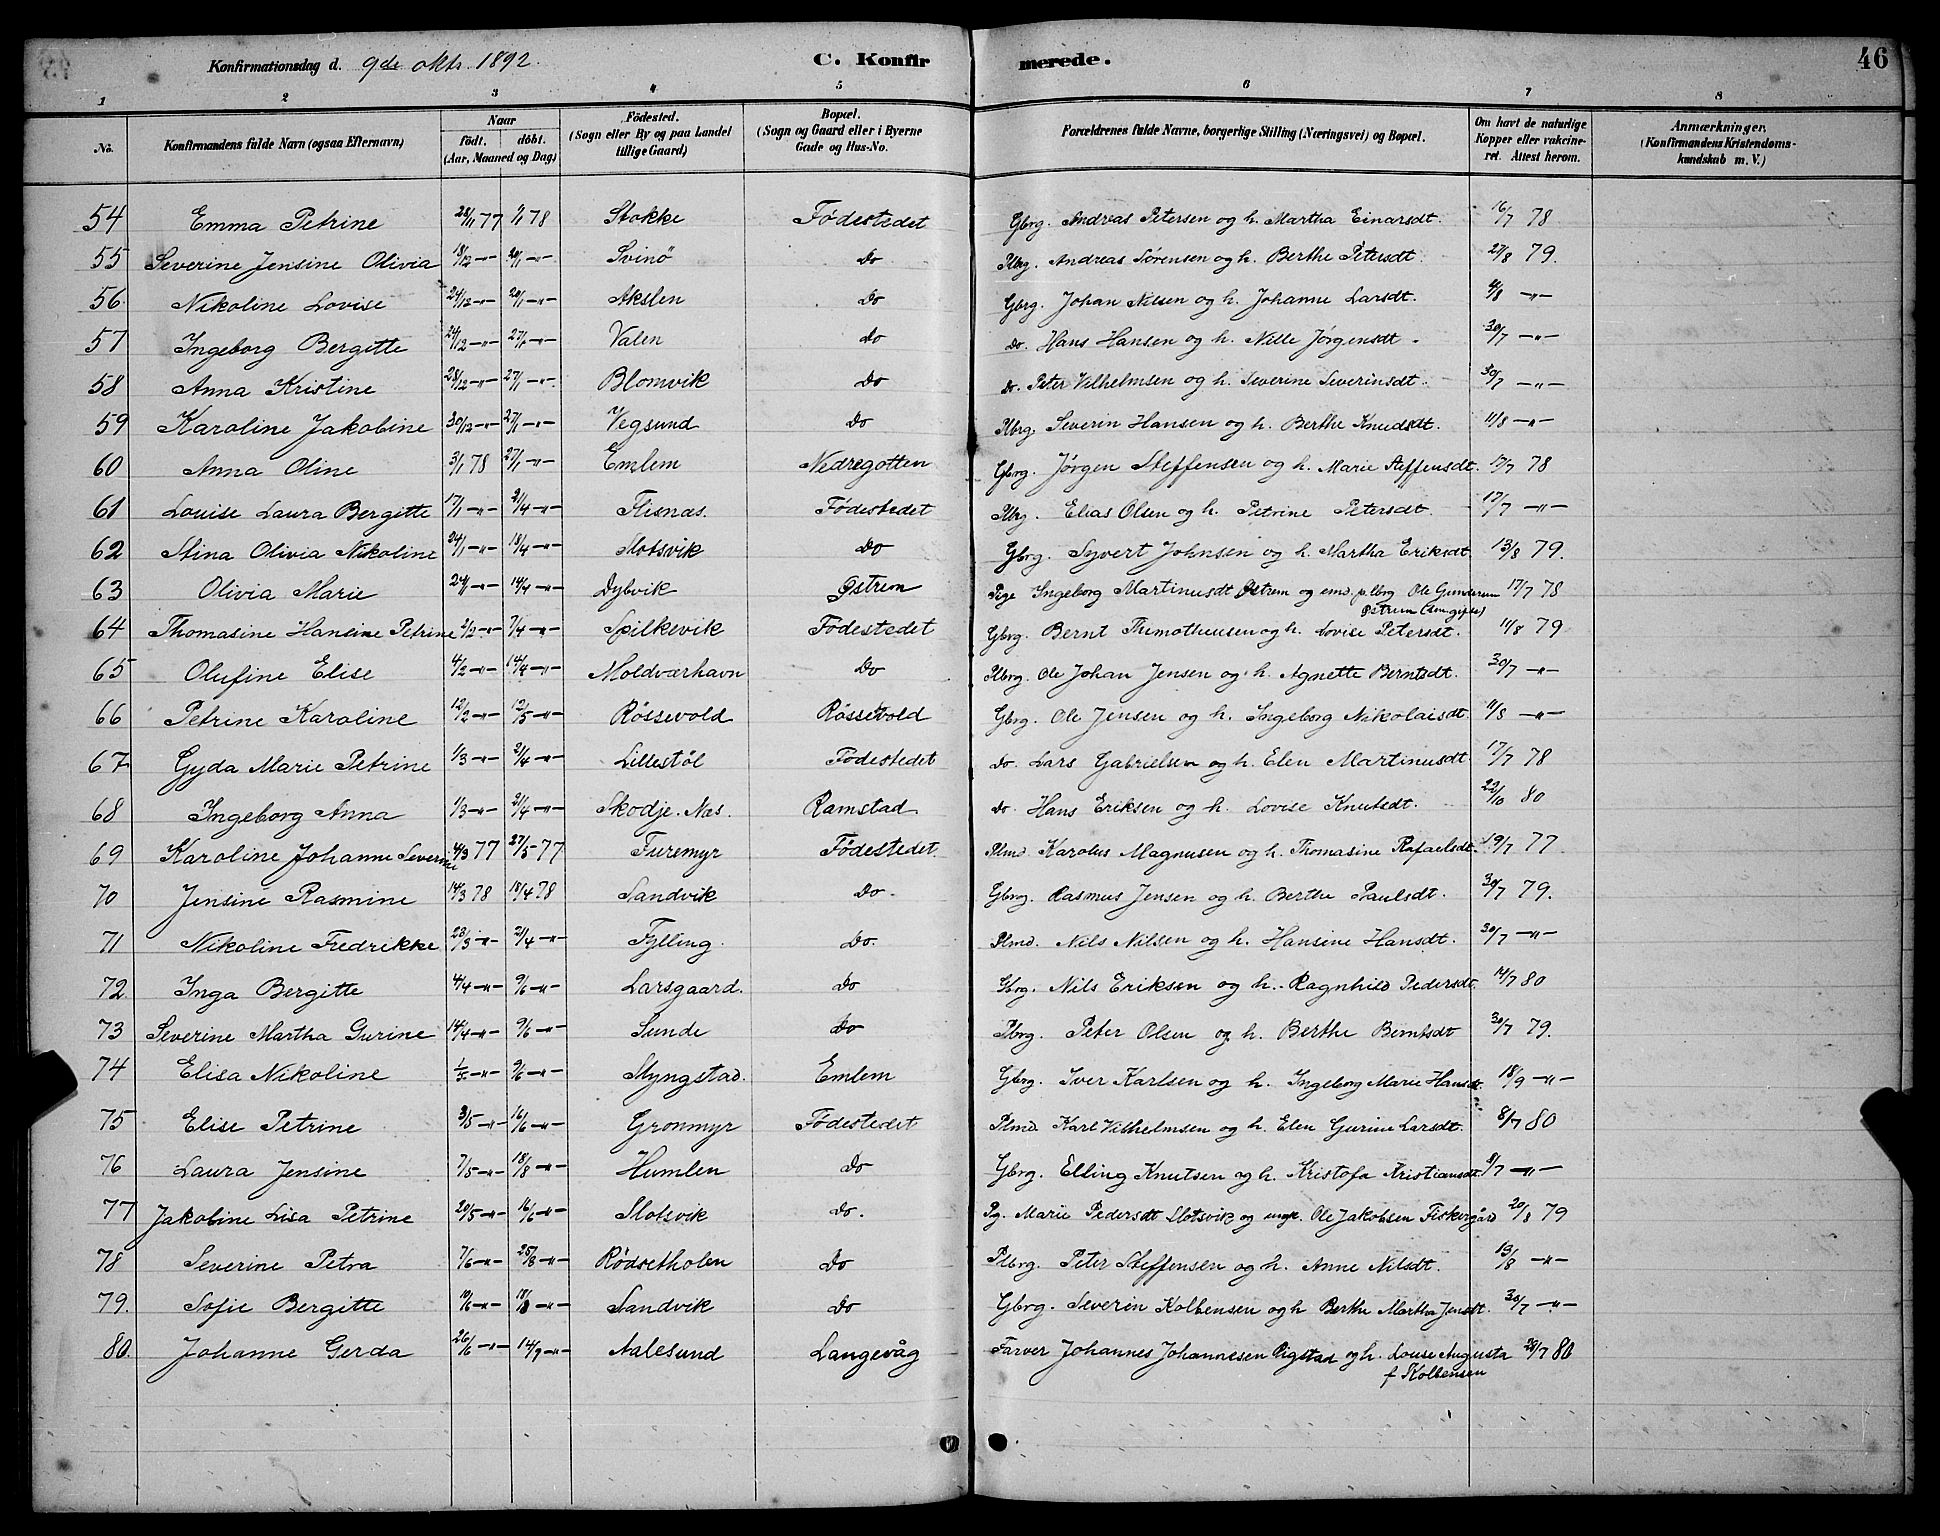 Konfirmationsdag d. 9de oktr. 1892. C. Konfirmerede. 46
1 2 3 4 5 6 7 8
No. Konfirmandens fulde Navn (ogsaa Efternavn) Naar födt. döbt. (Aar, Maaned og Dag) Födested. (Sogn eller By og paa Landet tillige Gaard) Bopæl. (Sogn og Gaard eller i Byerne Gade og Hus-No. Forældrenes fulde Navne, borgerlige Stilling (Næringsvei) og Bopæl. Om havt de naturlige Kopper eller vakcineret. Attest herom. Anmærkninger. (Konfirmandens Kristendomskundskab m. V.)
54 Emma Petrine 28/11 77 1/1 78 Stokke Födestedet Gbrg. Andreas Petersen og h. Martha Einarsdt. 16/7 78
55 Severine Jensine Olivia 18/12 -"- 20/1 -"- Svinö Do Plbrg. Andreas Sörensen og h. Berthe Petersdt. 27/8 79.
56. Nikoline Lovise 24/12 -"- 20/1 -"- Akslen Do Gbrg. Johan Nilsen og h. Johanne Larsdt. 4/8 -"-
57 Ingeborg Bergitte 24/12 -"- 27/1 -"- Valen do Do. Hans Hansen og h. Nille Jörgensdt. 30/7 -"-
58 Anna Kristine 28/12 -"- 27/1 -"- Blomvik Do Do. Peter Vilhelmsen og h. Severine Severinsdt. 30/7 -"-
59 Karoline Jakobine 30/12 -"- 27/1 -"- Vegsund Do Plbrg. Severin Hansen og h. Berthe Knudsdt. 11/8 -"-
60 Anna Oline 3/1 78 27/1 -"- Emlem Nedregotten Gbrg. Jörgen Steffensen og h. Marie Steffensdt. 17/7 78
61 Louise Laura Bergitte 17/1 -"- 21/4 -"- Flisnæs. Födestedet Plbrg. Elias Olsen og h. Petrine Petersdt. 17/7 -"-
62 Stina Olivia Nikoline 24/1 -"- 18/4 -"- Slotsvik Do Gbrg. Syvert Johnsen og h. Martha Eriksdt 13/8 79.
63 Olivia Marie 24/1 -"- 14/4 -"- Dybvik Østrem Pige Ingeborg Martinusdt Østrem og Ole Gundersen 17/7 78
64 Thomasine Hansine Petrine 2/2 -"- 7/4 -"- Spilkevik Födestedet Gbrg. Bernt Thimotheusen og h. Lovise Petersdt. 11/8 79
65 Olufine Elise 4/2 -"- 14/4 -"- Moldværhavn Do Plbrg. Ole Johan Jensen og h. Agnette Berntsdt. 30/7 -"-
66 Petrine Karoline 12/2 -"- 12/5 -"- Røssevold Røssevold Gbrg. Ole Jensen og h. Ingeborg Nikolaisdt. 11/8 -"-
67 Gyda Marie Petrine 1/3 -"- 21/4 -"- Lillestöl Födestedet Do. Lars Gabrielsen og h. Elen Martinusdt 17/7 78
68 Ingeborg Anna 1/3 -"- 21/4 -"- Skodje. Næs. Ramstad Do. Hans Eriksen og h. Lovise Knutsdt. 22/10 80
69 Karoline Johanne Severine 4/3 77 27/5 77 Furemyr Födestedet. Plmd. Karolus Magnusen og h. Thomasine Rafaelsdt. 19/7 77.
70 Jensine Rasmine 14/3 78 18/4 78 Sandvik Do. Gbrg. Rasmus Jensen og h. Berthe Paulsdt. 30/7 79.
71 Nikoline Fredrikke 23/3 -"- 21/4 -"- Fylling. Do. Plmd. Nils Nilsen og h. Hansine Hansdt. 30/7 -"-
72 Inga Bergitte 4/4 -"- 9/6 -"- Larsgaard. Do Gbrg. Nils Eriksen og h. Ragnhild Pedersdt. 14/7 80
73 Severine Martha Gurine 14/4 -"- 9/6 -"- Sunde Do Plbrg. Peter Olsen og h. Berthe Berntsdt 30/7 79.
74 Elisa Nikoline 1/5 -"- 9/6 -"- Myngstad. Emlem Gbrg. Iver Karlsen og h. Ingeborg Marie Hansdt. 18/9 -"-
75 Elise Petrine 3/5 -"- 16/6 -"- Gronmyr Födestedet Plmd. Karl Vilhelmsen og h. Elen Gurine Larsdt. 8/7 80
76 Laura Jensine 7/5 -"- 18/8 -"- Humlen Do Gbrg. Elling Knutsen og h. Kristofa Kristiansdt. 8/7 -"-
77 Jakobine Lisa Petrine 20/5 -"- 16/6 -"- Slotsvik Do. Pg. Marie Pedersdt Slotsvik og ungk. Ole Jakobsen Fiskergård 20/8 79
78 Severine Petra 7/6 -"- 25/8 -"- Rödsetholen Do Plbrg. Peter Steffensen og h. Anne Nilsdt. 13/8 -"-
79. Sofie Bergitte 10/6 -"- Sandvik Do Gbrg. Severin Kolbensen og h Berthe Martha Jensdt. 30/7 -"-
80. Johanne Gerda 26/6 -"- 14/9 -"- Aalesund Langevåg Farver Johannes Johannesen Rigstad og h. Louise Augusta f Kolbensen 29/7 80